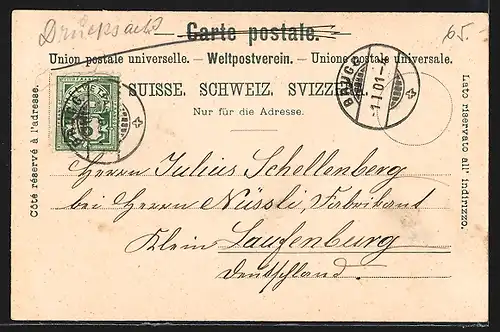 Drucksache
65.-
Carte postale.
Union postale universelle. - Weltpostverein. - Unione postale universale.
SUISSE. SCHWEIZ. SVIZZE
Nur für die Adresse.
Côté réservé à l'adresse.
Lato riservato all' indirizzo.
BRUGG
-1.I.01.-1
Herrn Julius Schellenberg
bei Herrn Nüssli, Fabrikant
Klein Laufenburg
Deutschland.